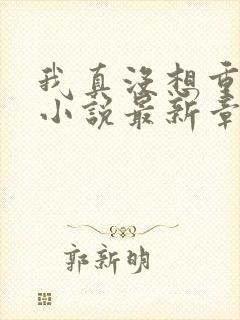 我真没想重
小说最新章
郭新明